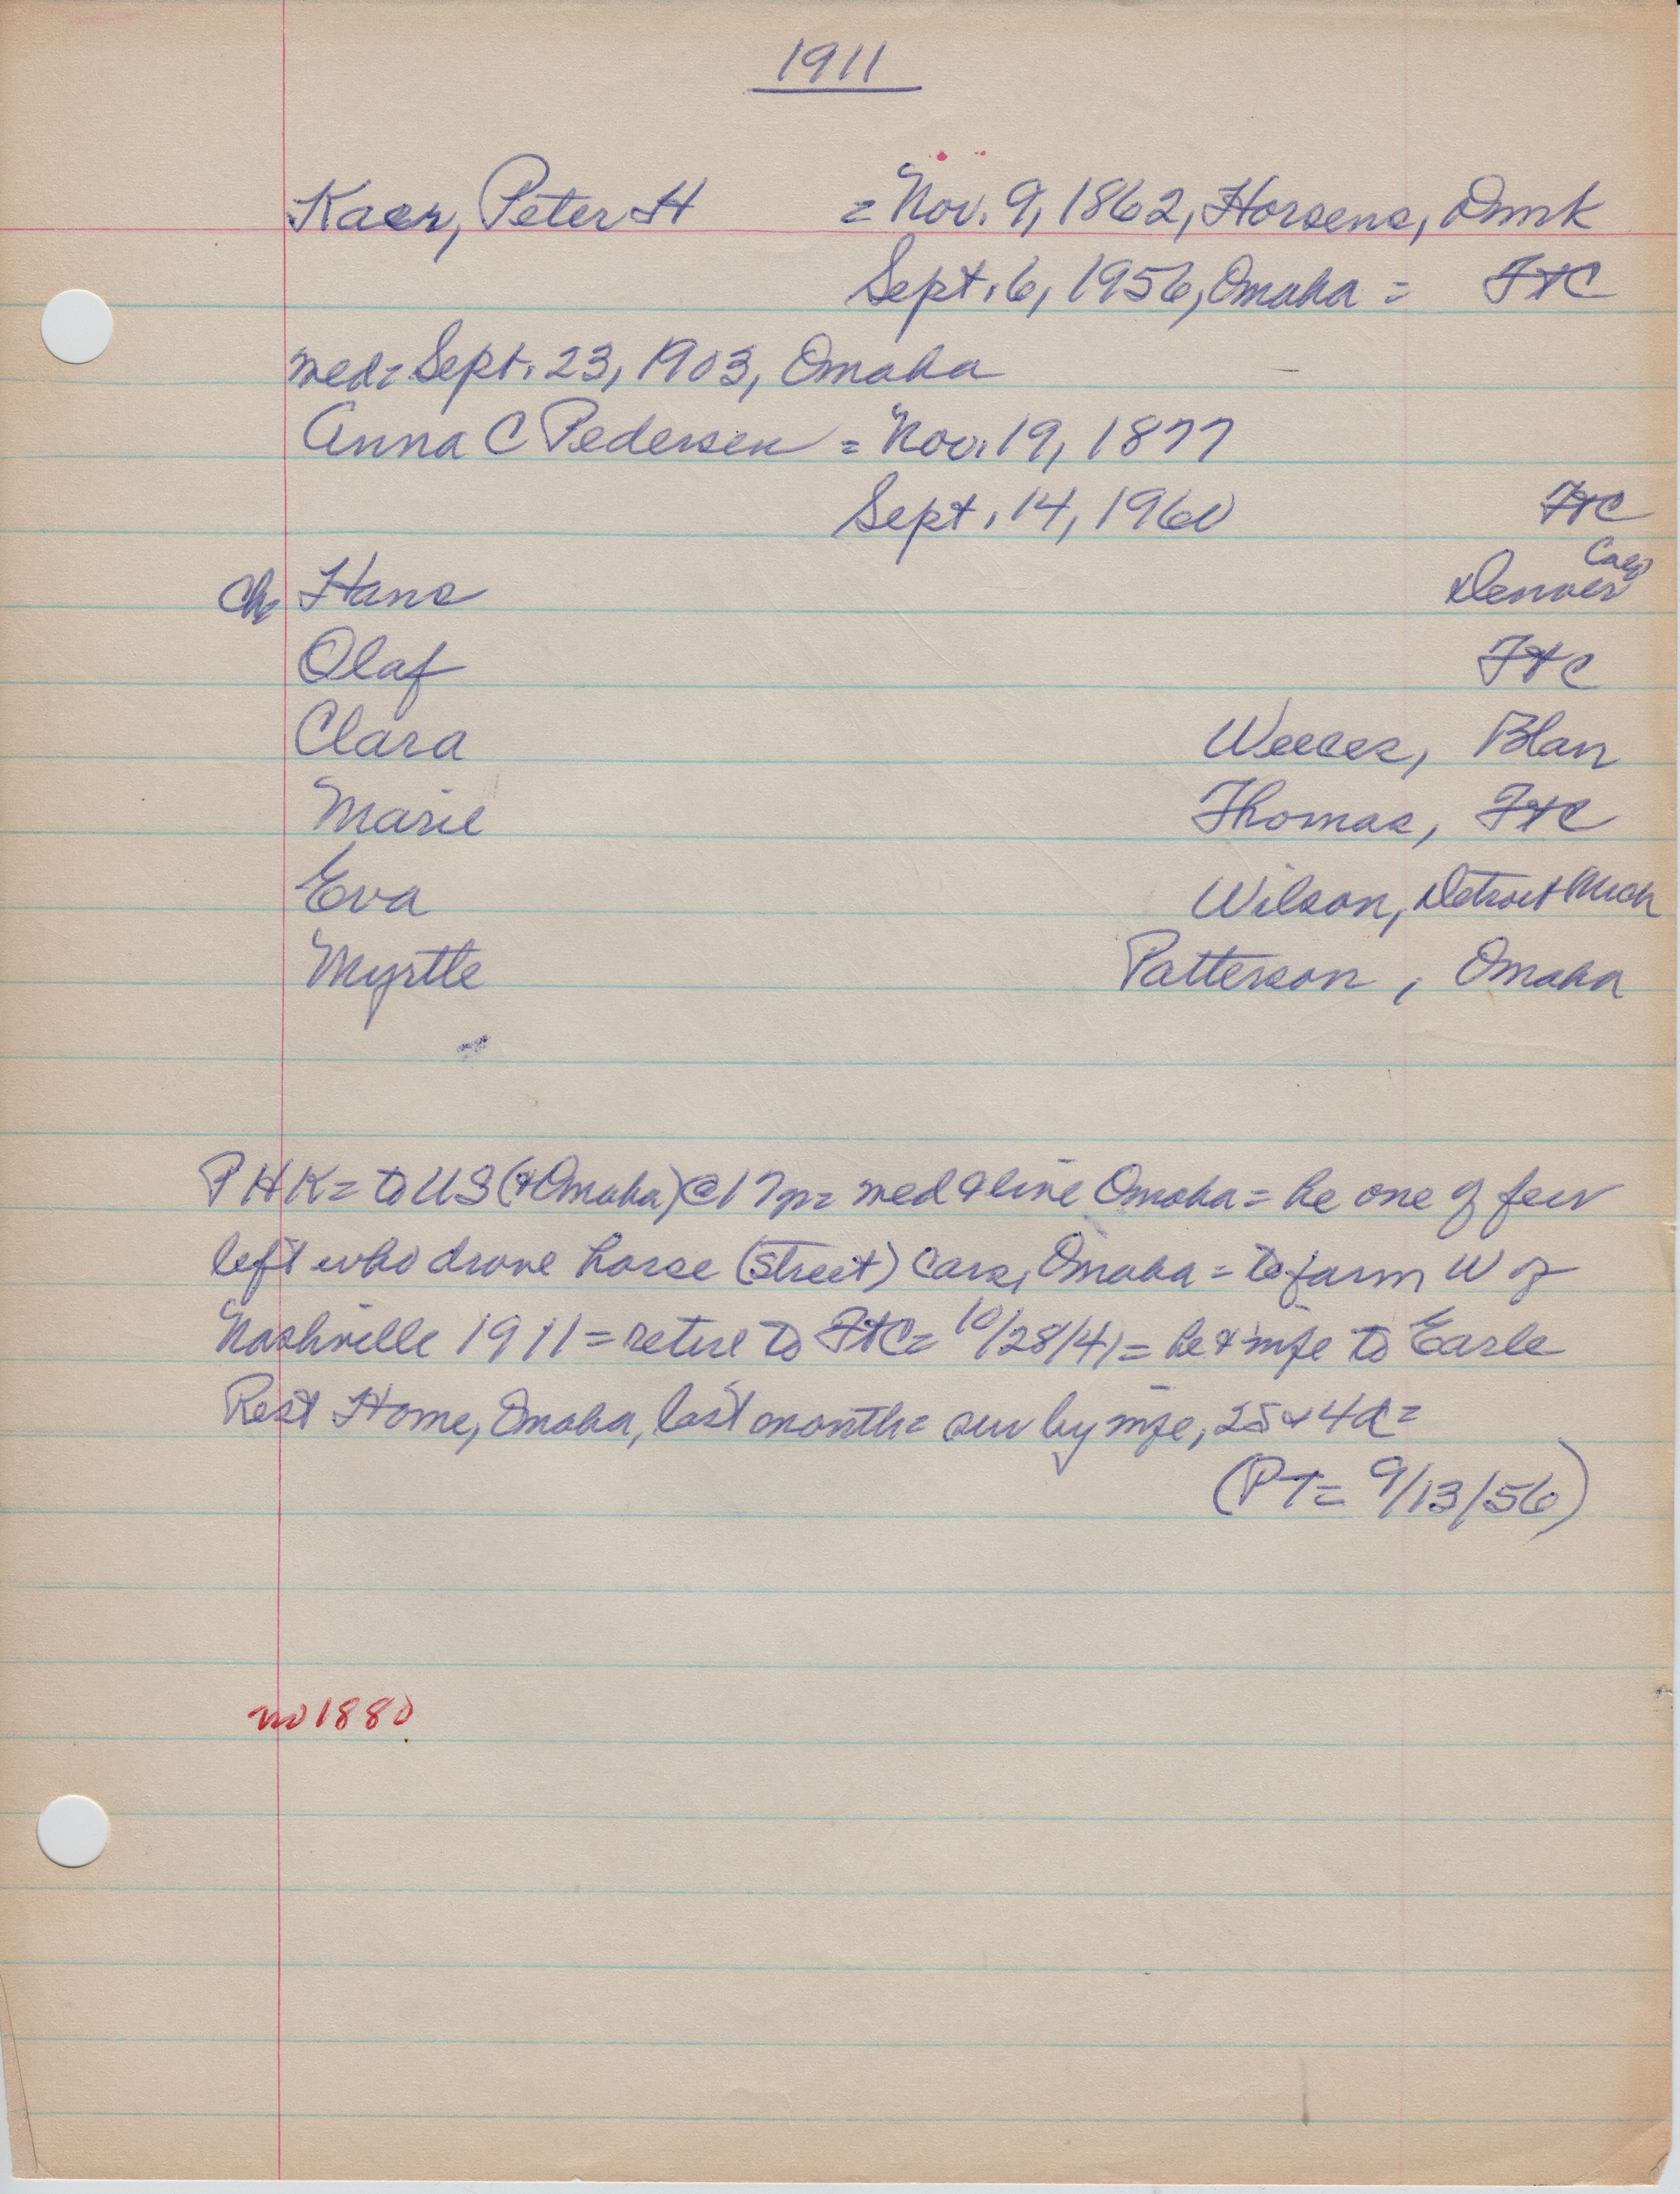 1911
Kaer, Peter H = Nov. 9, 1862, Horsens, Dmrk
Sept. 6, 1956, Omaha = FtC
med= Sept. 23, 1903, Omaha
Anna C Pedersen = Nov. 19, 1877
Sept. 14, 1960 FtC
Ch Hans Denver
Olaf FtC
Clara Blair
Marie Thomas, FtC
Eva Wilson, Detroit Mich
Myrtle Patterson, Omaha
PHK= to US (& Omaha) @ 17 med & live Omaha = he one of few
left who drove horse (street) cars, Omaha = to farm W of
Nashville 1911 = retire to FtC = 10/28/41 = he & wife to Earle
Rest Home, Omaha, last month = sur by wife, 2S & 4d =
(PT = 9/13/56)
no 1880